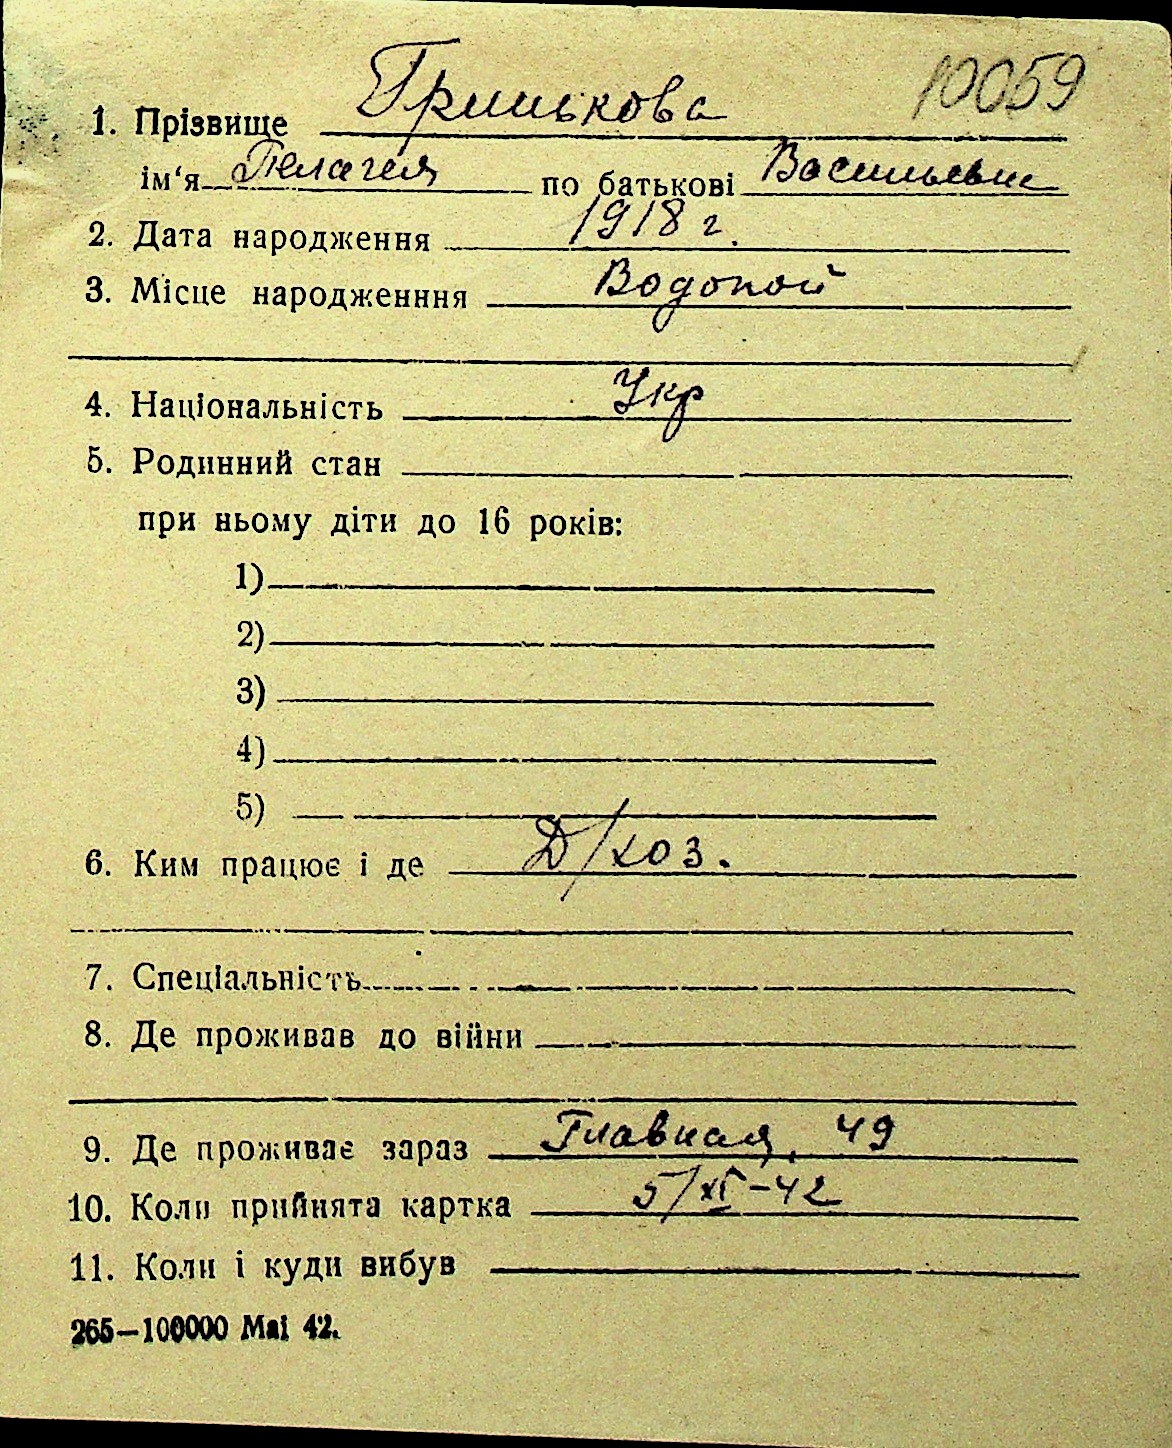 10059
1. Прізвище Гришкова
ім'я Пелагея по батькові Васильевн
2. Дата народження 1918 г.
3. Місце народженння Водопой
4. Національність Укр
5. Родинний стан
при ньому діти до 16 років:
1)
2)
3)
4)
5)
6. Ким працює і де Д/хоз.
7. Спеціальність
8. Де проживав до війни
9. Де проживає зараз Главная, 49
10. Коли прийнята картка 5/XI-42
11. Коли і куди вибув
265—100000 Маі 42.